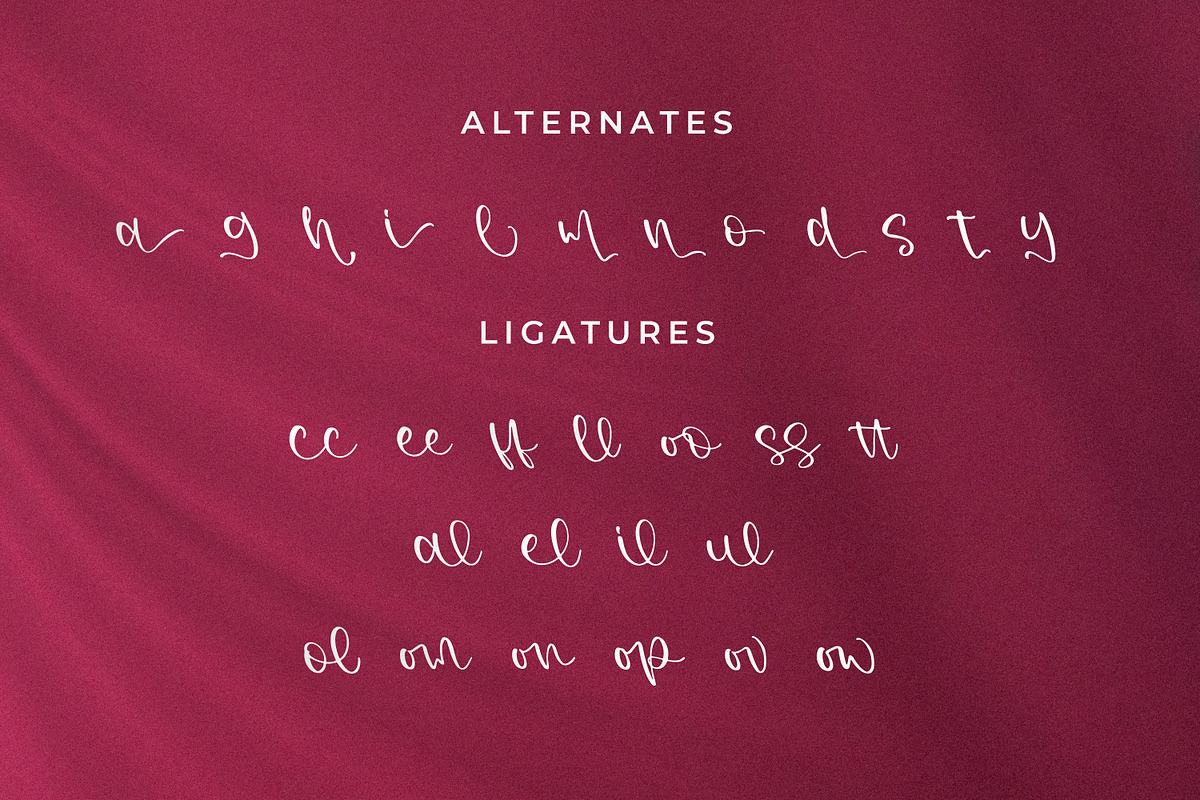 ALTERNATES
a g h i l m n o d s t y
LIGATURES
cc ee ff ll oo ss tt
al el il ul
ol om on op ov ow